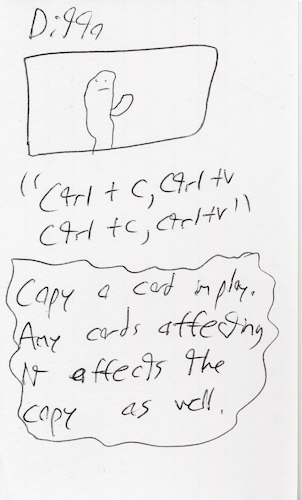 Digga
"Ctrl + C, Ctrl + V
Ctrl + C, Ctrl + V"
Copy a card in play.
Any cards affecting
it affects the
copy as well.